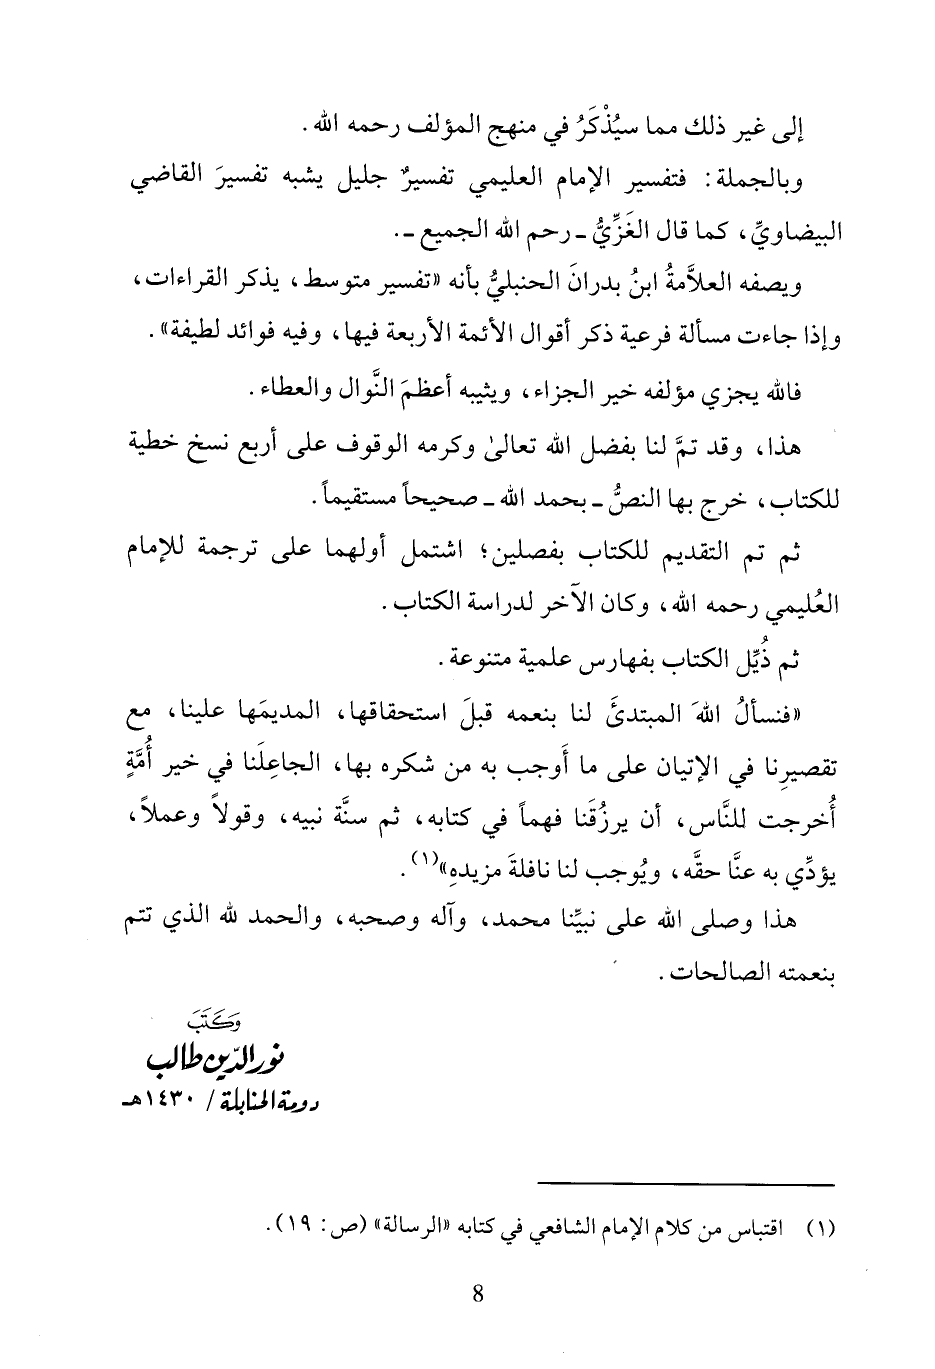 إلى غير ذلك مما سيُذْكَرُ في منهج المؤلف رحمه الله.
وبالجملة: فتفسير الإمام العليمي تفسيرٌ جليل يشبه تفسيرَ القاضي
البيضاويِّ، كما قال الغَزِّيُّ ـ رحم الله الجميع ـ.
ويصفه العلاَّمةُ ابنُ بدرانَ الحنبليُّ بأنه «تفسير متوسط، يذكر القراءات،
وإذا جاءت مسألة فرعية ذكر أقوال الأئمة الأربعة فيها، وفيه فوائد لطيفة».
فالله يجزي مؤلفه خير الجزاء، ويثيبه أعظمَ النَّوال والعطاء.
هذا، وقد تمَّ لنا بفضل الله تعالىٰ وكرمه الوقوف على أربع نسخ خطية
للكتاب، خرج بها النصُّ ـ بحمد الله ـ صحيحاً مستقيماً.
ثم تم التقديم للكتاب بفصلين؛ اشتمل أولهما على ترجمة للإمام
العُليمي رحمه الله، وكان الآخر لدراسة الكتاب.
ثم ذُيِّل الكتاب بفهارس علمية متنوعة.
«فنسألُ اللهَ المبتدئَ لنا بنعمه قبلَ استحقاقها، المديمَها علينا، مع
تقصيرِنا في الإتيان على ما أَوجب به من شكره بها، الجاعِلَنا في خير أُمَّةٍ
أُخرجت للنَّاس، أن يرزُقَنا فهماً في كتابه، ثم سنَّة نبيه، وقولاً وعملاً،
يؤدِّي به عنَّا حقَّه، ويُوجب لنا نافلةَ مزيدهِ»(١).
هذا وصلى الله على نبيِّنا محمد، وآله وصحبه، والحمد لله الذي تتم
بنعمته الصالحات.
وَكَتَبَ
نور الدّين طالب
دومة الحنابلة / ١٤٣٠هـ
(١) اقتباس من كلام الإمام الشافعي في كتابه «الرسالة» (ص: ١٩).
8